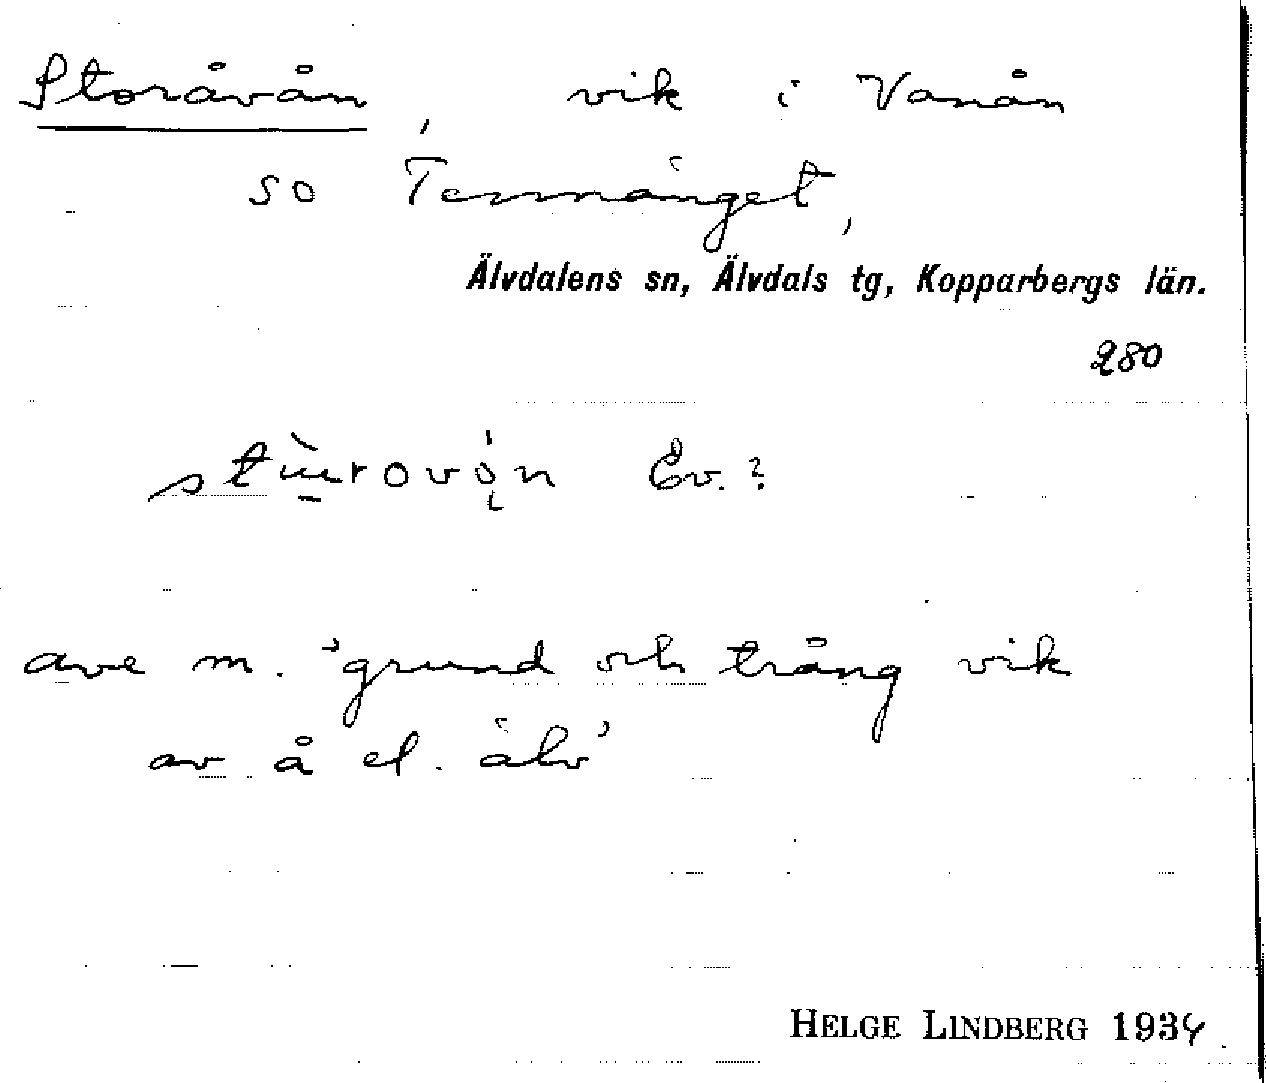 Storåvån, vik i Vanån
SO Tennänget,
Älvdalens sn, Älvdals tg, Kopparbergs län.
280
Ev.?
ave m. 'grund och trång vik
av å el. älv'
HELGE LINDBERG 1934